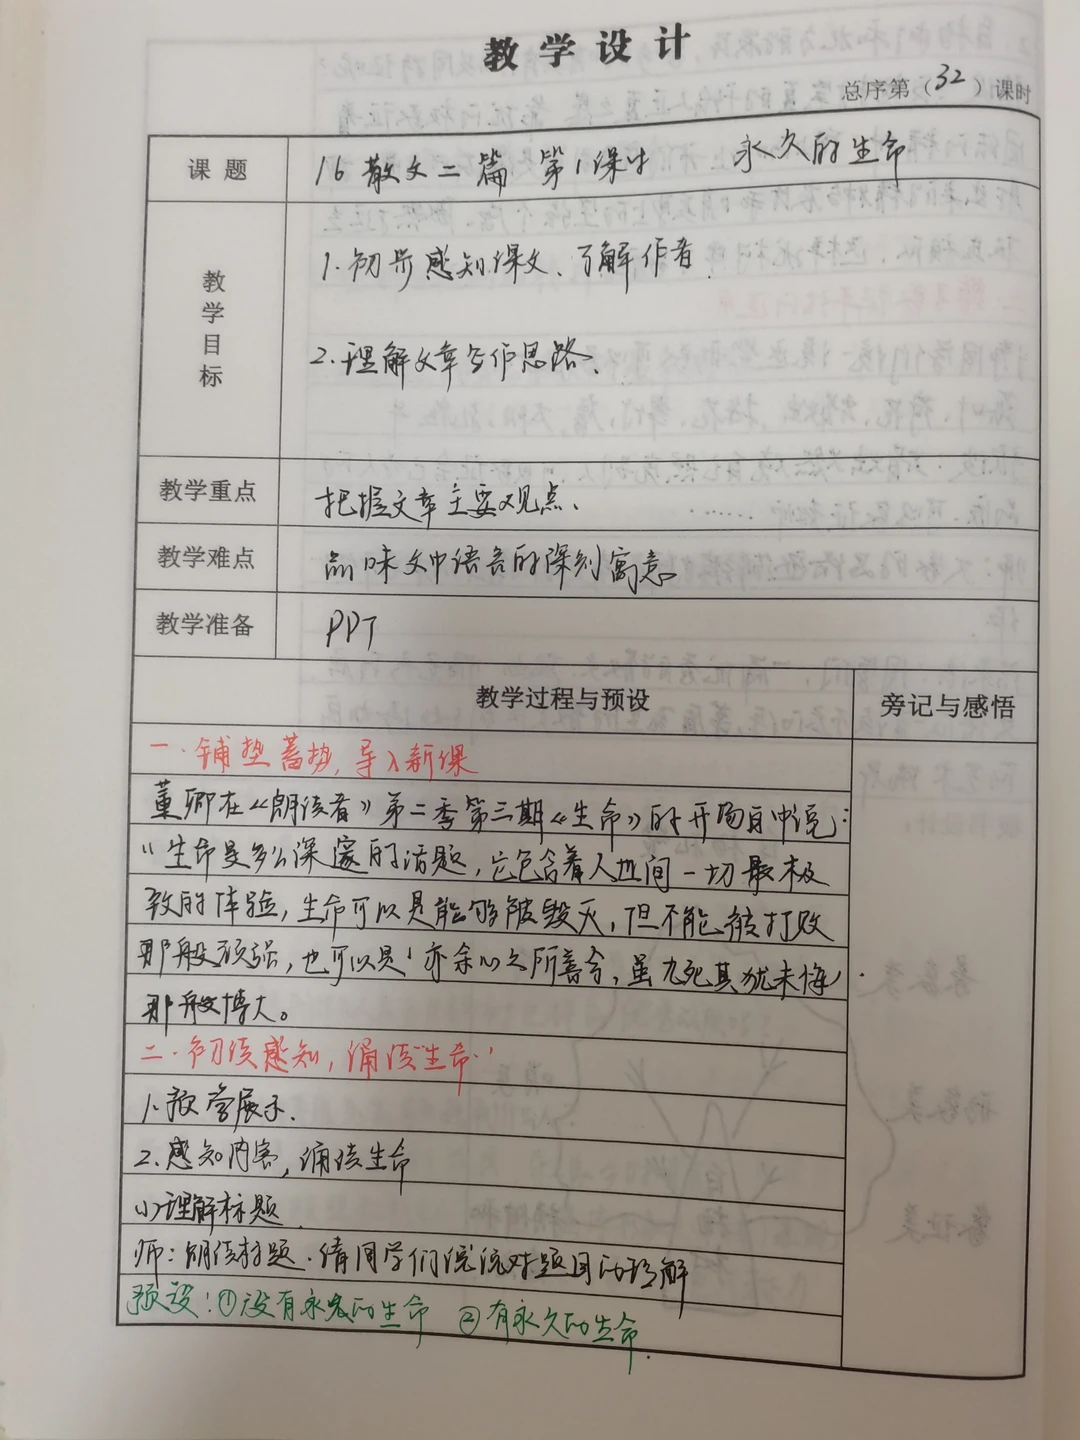 教学设计
总序第（32）课时
课题 16 散文二篇 第1课时 永久的生命
教学目标
1.初步感知课文、了解作者.
2.理解文章写作思路、
教学重点 把握文章主要观点、
教学难点 品味文中语言的深刻寓意
教学准备 PPT
教学过程与预设 旁记与感悟
一.铺垫蓄势,导入新课
董卿在《朗读者》第二季第三期《生命》的开场白中说:
"生命是多么深邃的话题,它包含着人世间一切最极
致的体验,生命可以是能够被毁灭,但不能被打败
那般顽强,也可以是'亦余心之所善兮,虽九死其犹未悔'
那般博大。
二.初读感知,诵读"生命"
1.预学展示.
2.感知内容,诵读生命
(1)理解标题.
师:朗读标题.请同学们说说对题目的理解
预设:①没有永久的生命 ②有永久的生命.